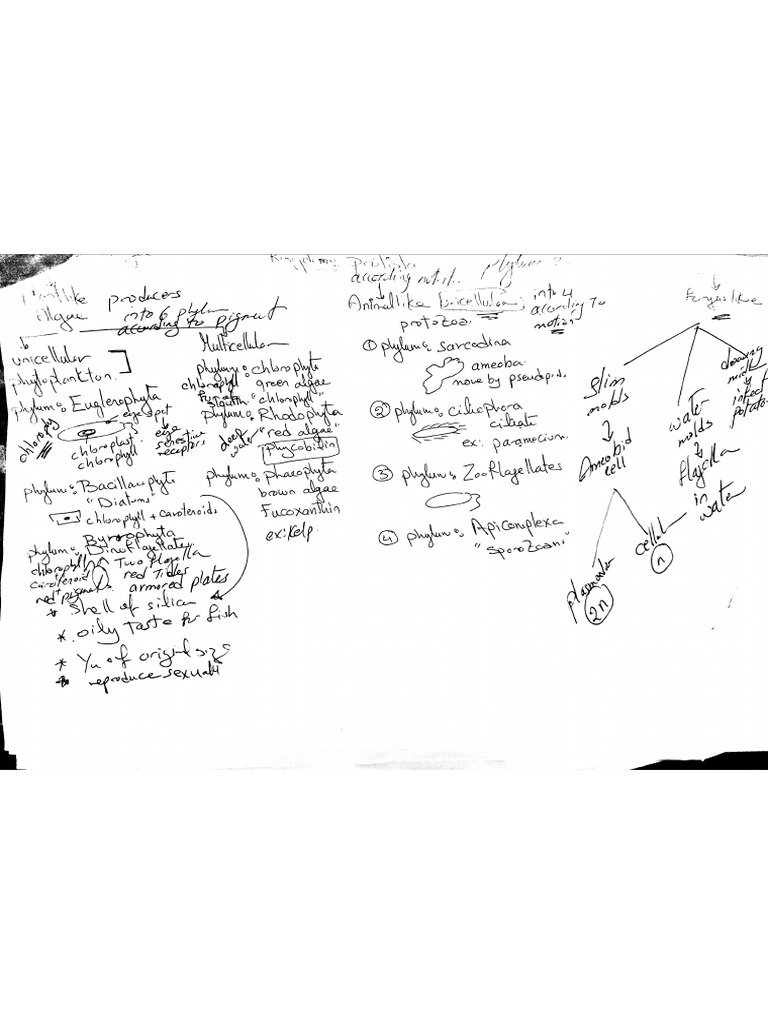 Kingdom Protista
according nutrit..
Plantlike producers
Algae into 6 phyla
according to pigment
unicellular
phytoplankton.
phylum: Euglenophyta
eye spot
chlorophy
chloroplast
chlorophyll
eye
sensitive
receptors
phylum: Bacillariophyti
"Diatoms"
chlorophyll + carotenoids
Byrrophyta
phylum: Dinoflagellates
chlorophyll
Two flagella
carotenoid
red Tides
red pigments
armored plates
* Shell of silica
* oily Taste for fish
* of original size
* reproduce sexual
Multicellular
phylum: chlorophyta
chlorophyll green algae
"chlorophyll"
phylum: Rhodophyta
deep
water
"red algae"
Phycobilin
phylum: Phaeophyta
brown algae
Fucoxanthin
ex: Kelp.
Animallike unicellular into 4
according To
motion
protozoa
① phylum: sarcodina
ameoba
move by pseudopid.
② phylum: ciliophora
ciliate
ex: paramecium.
③ phylum: Zooflagellates
④ phylum: Apicomplexa
"Sporozoans"
Funguslike
Slim
molds
Ameobid
cell
plasmodia
2n
cellular
n
water
molds
flagella
in
water
downing
mildy
infect
potatoes